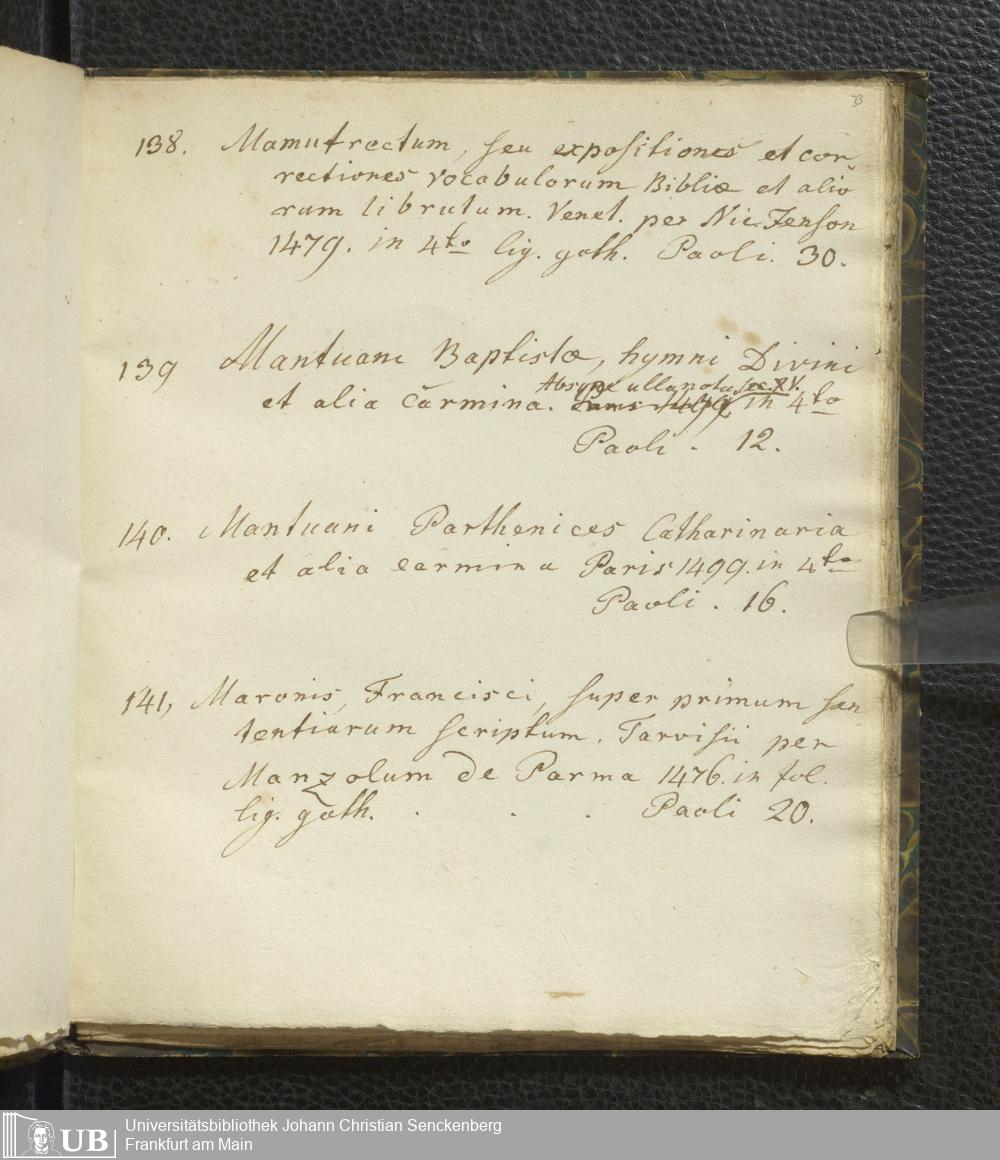 33
138. Mamutrectum, seu expositiones et cor-
rectiones vocabulorum Bibliæ et alio
rum librutum. Venet. per Nic. Jenson
1479. in 4to lig. goth. Paoli. 30.
139 Mantuani Baptistæ, hymni Divini
Absque ulla nota Sec. XV.
et alia carmina. in 4to
Paoli. 12.
140. Mantuani Parthenices Catharinaria
et alia carmina Paris 1499. in 4to
Paoli. 16.
141, Maronis, Francisci, super primum sen
tentiarum scriptum. Tarvisii per
Manzolum de Parma 1476. in fol.
lig. goth. . . . Paoli 20.
UB Universitätsbibliothek Johann Christian Senckenberg
Frankfurt am Main